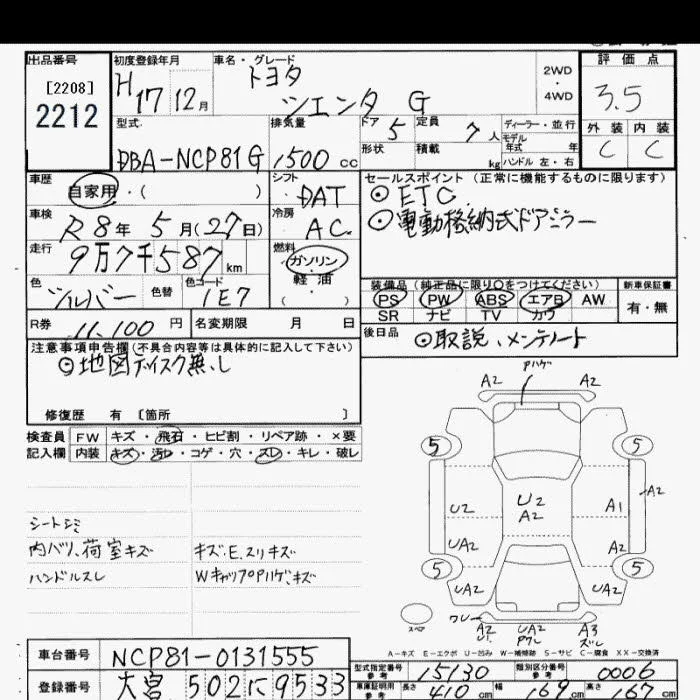 出品番号
[2208]
2212
初度登録年月
H17 12月
車名・グレード
トヨタ
シエンタ G
2WD
・
4WD
評価点
3.5
外装 内装
C C
型式
DBA-NCP81G
排気量
1500 cc
ドア 5
定員 7 人
形状
積載 kg
ディーラー・並行
モデル
年式 年
ハンドル 左・右
車歴
自家用・( )
シフト
DAT
車検
R8年 5月(27日)
冷房
AC
走行
9万7千587km
燃料
ガソリン
・
軽油
( )
色
シルバー
色替
色コード
1E7
セールスポイント (正常に機能するものに限ります)
⊙ETC
⊙電動格納式ドアミラー
装備品 (純正品に限り○をつけてください)
PS PW ABS エアB AW
SR ナビ TV カワ
新車保証書
有・無
R券 11,100円
名変期限 月 日
後日品 ⊙取説、メンテノート
注意事項申告欄 (不具合内容等は具体的に記入して下さい)
⊙地図ディスク無し
修復歴 有 [箇所 ]
検査員 FW キズ・飛石・ヒビ割・リペア跡・×要
記入欄 内装 キズ・汚レ・コゲ・穴・スレ・キレ・破レ
シートシミ
内バリ、荷室キズ
ハンドルスレ
キズ、E、スリキズ
WキャップPハゲ、キズ
Pハゲ
A2 A2
5 5
A2
U2 U2 A1
A2
UA2 A2
5 5
UA2 UA2
スペア
ワレ
A2 UA2 A3
U1 Pワレ ズレ
A-キズ E-エクボ U-凹み W-補修跡 S-サビ C-腐食 XX-交換済
車台番号 NCP81-0131555
登録番号 大宮 502に9533
型式指定番号
参考
15130
類別区分番号
参考
0006
車庫証明用
参考
長さ 410 cm
幅 169 cm
高さ 169 cm